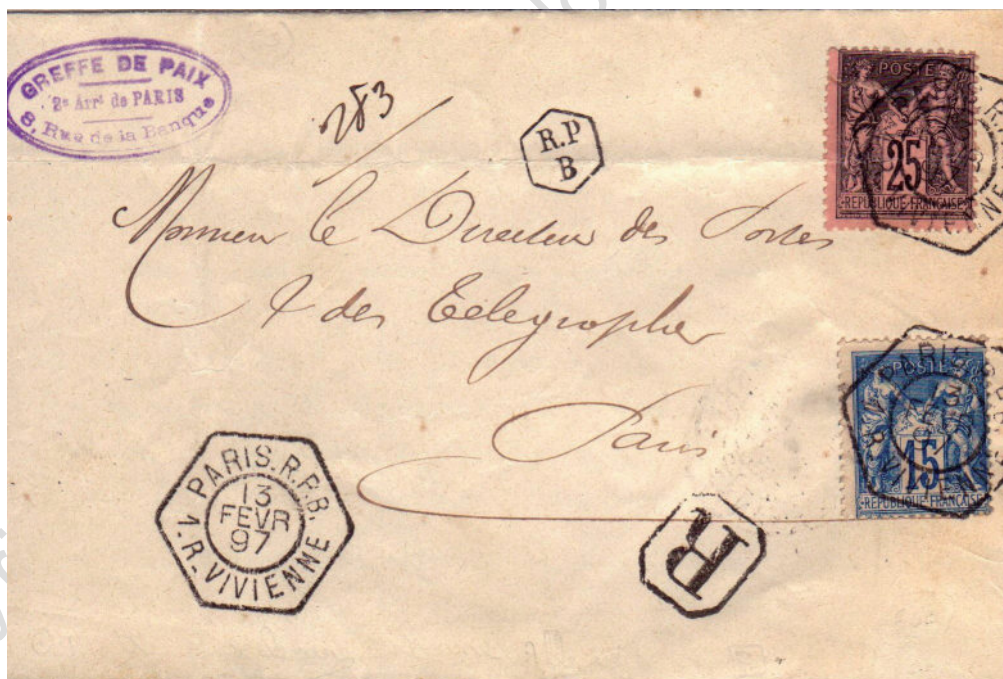 GREFFE DE PAIX
2e Arrt de PARIS
8, Rue de la Banque
283
R.P
B
POSTE
25
REPUBLIQUE FRANÇAISE
Monsieur le Directeur des Postes
& des Télégraphes
Paris
POSTE
15
REPUBLIQUE FRANÇAISE
PARIS.R.P.B.
13
FEVR
97
1.R.VIVIENNE
R